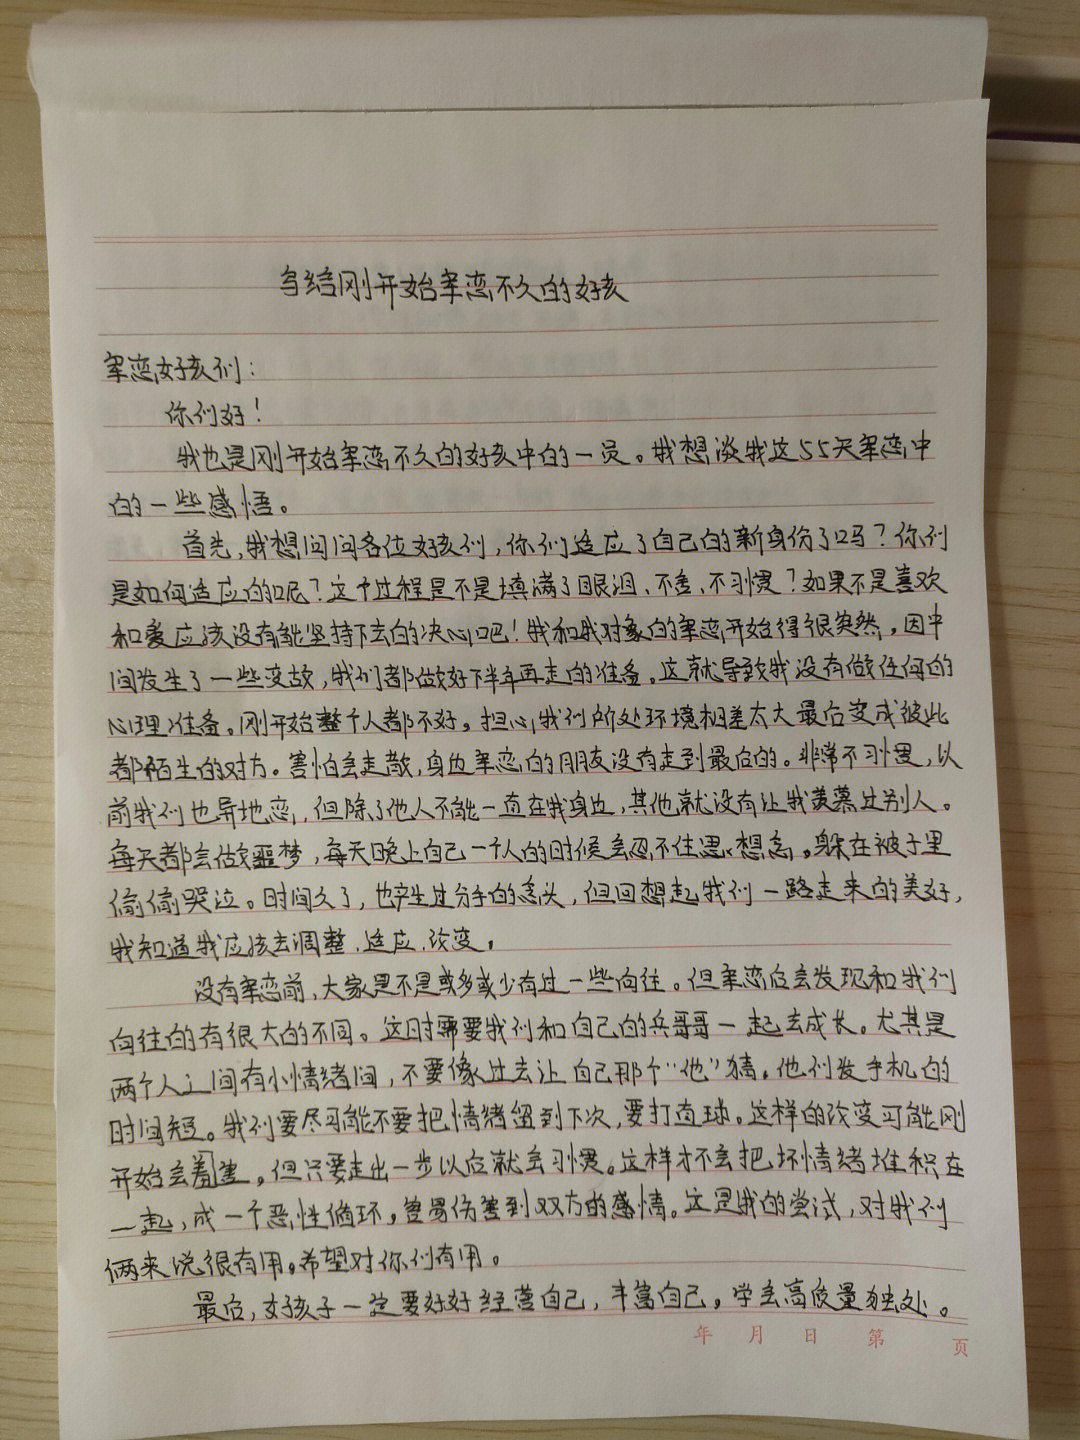 写给刚开始军恋不久的女孩
军恋女孩们:
你们好!
我也是刚开始军恋不久的女孩中的一员。我想谈我这55天军恋中
的一些感悟。
首先,我想问问各位女孩们,你们适应了自己的新身份了吗?你们
是如何适应的呢?这个过程是不是填满了眼泪、不舍、不习惯?如果不是喜欢
和爱应该没有能坚持下去的决心吧!我和我对象的军恋开始得很突然,因中
间发生了一些变故,我们都做好下半年再走的准备。这就导致我没有做任何的
心理准备。刚开始整个人都不好。担心我们所处环境相差太大最后变成彼此
都陌生的对方。害怕会走散,身边军恋的朋友没有走到最后的。非常不习惯,以
前我们也异地恋,但除了他人不能一直在我身边,其他就没有让我羡慕过别人。
每天都会做噩梦,每天晚上自己一个人的时候会忍不住思想念。躲在被子里
偷偷哭泣。时间久了,也产生过分手的念头,但回想起我们一路走来的美好,
我知道我应该去调整、适应、改变。
没有军恋前,大家是不是或多或少有过一些向往。但军恋后会发现和我们
向往的有很大的不同。这时需要我们和自己的兵哥哥一起去成长。尤其是
两个人之间有小情绪间,不要像过去让自己那个“他”猜。他们发手机的
时间短。我们要尽可能不要把情绪留到下次,要打直球。这样的改变可能刚
开始会羞涩。但只要走出一步以后就会习惯。这样才不会把坏情绪堆积在
一起,成一个恶性循环,容易伤害到双方的感情。这是我的尝试,对我们
俩来说很有用。希望对你们有用。
最后,女孩子一定要好好经营自己,丰富自己。学会高质量独处。
年 月 日 第 页